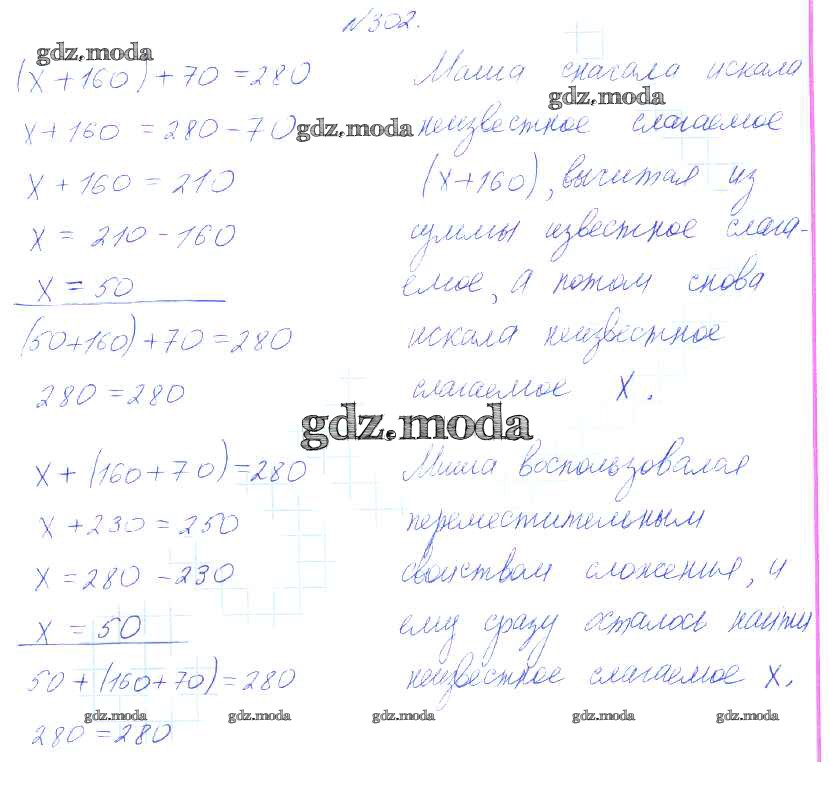 №302.
gdz.moda
(x+160)+70=280
x+160=280-70
x+160=210
x=210-160
x=50
(50+160)+70=280
280=280
Маша сначала искала
gdz.moda
gdz.moda
неизвестное слагаемое
(x+160), вычитая из
суммы известное слага-
емое, а потом снова
искала неизвестное
слагаемое x.
gdz.moda
x+(160+70)=280
x+230=250
x=280-230
x=50
50+(160+70)=280
280=280
Миша воспользовался
переместительным
свойством сложения, и
ему сразу осталось найти
неизвестное слагаемое x.
gdz.moda gdz.moda gdz.moda gdz.moda gdz.moda